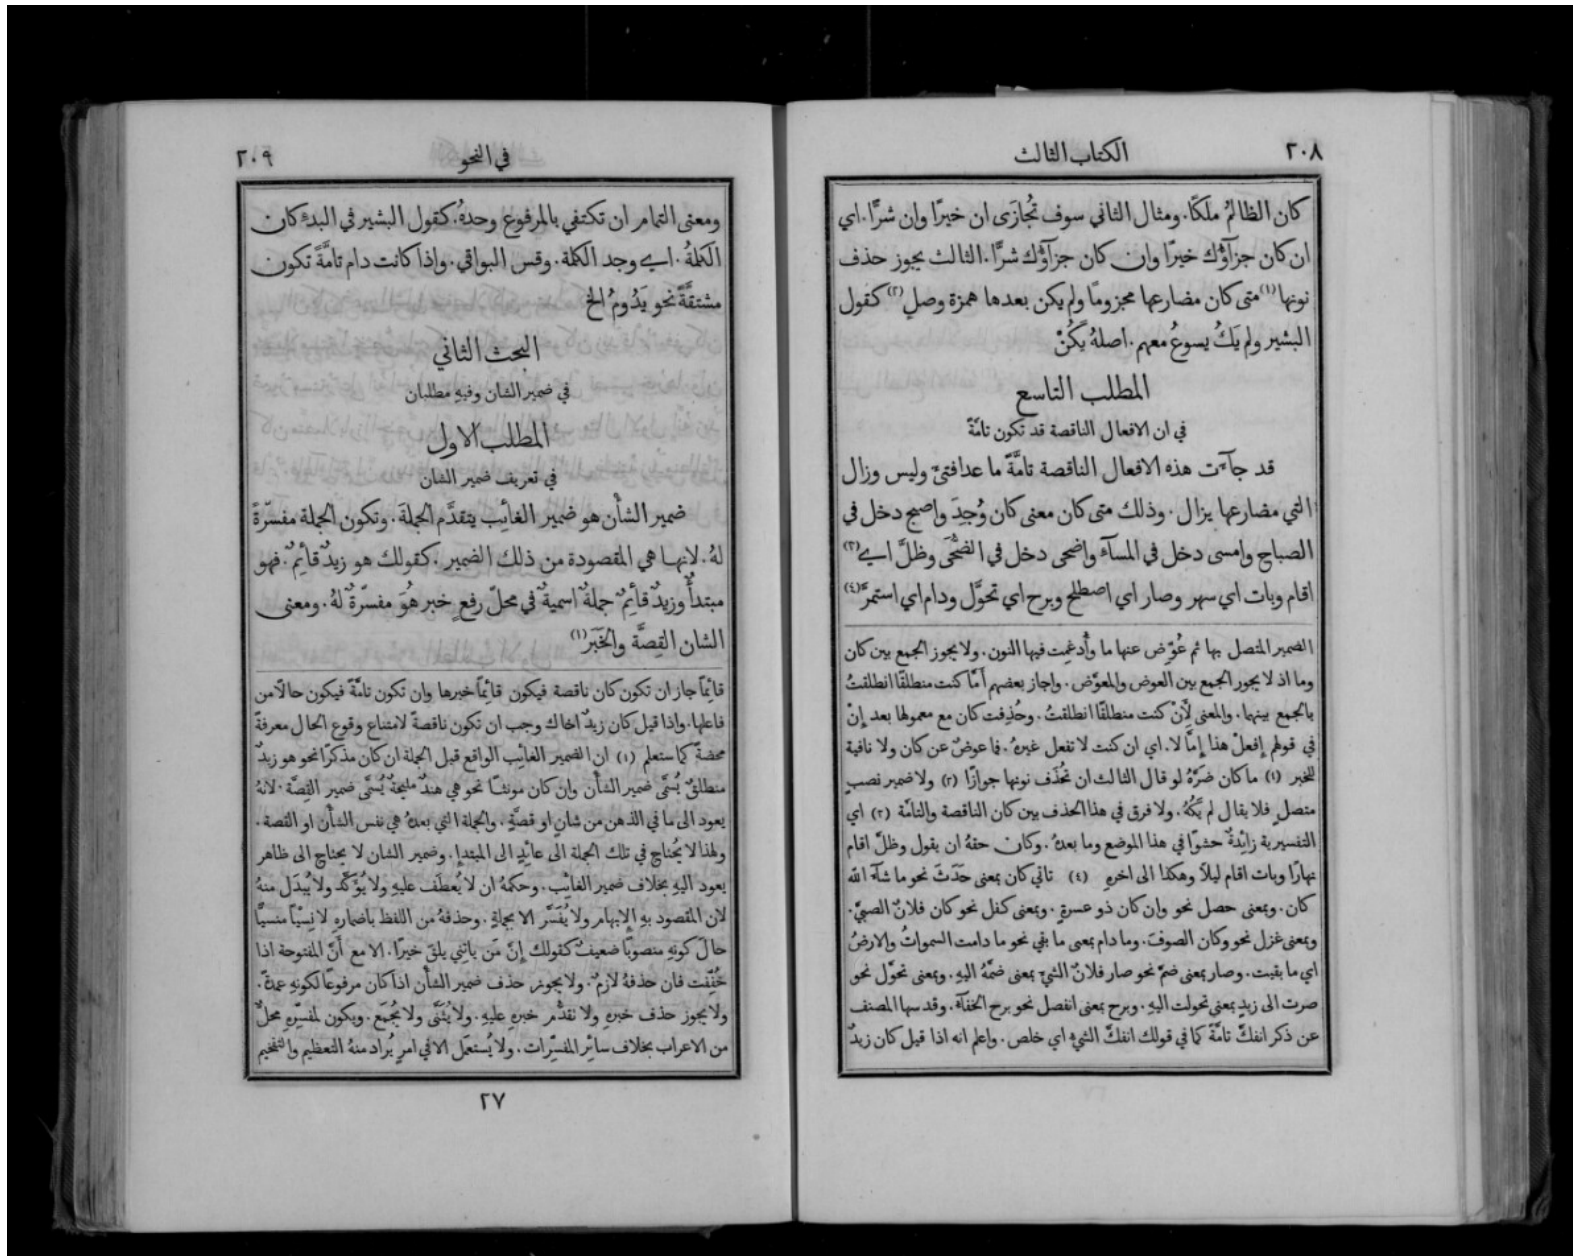 ٢٠٨
الكتاب الثالث
كان الظالمُ ملَكًا. ومثال الثاني سوف تُجازَى ان خيرًا وإن شرًّا. اي
ان كان جزآؤُك خيرًا وان كان جزآؤُك شرًّا. الثالث يجوز حذف
نونها (١) متى كان مضارعها مجزومًا ولم يكن بعدها همزة وصلٍ (٢) كقول
البشير ولم يَكُ يسوعُ معهم. اصلهُ يكُنْ
المطلب التاسع
في ان الافعال الناقصة قد تكون تامَّة
قد جآءَت هذه الافعال الناقصة تامَّةً ما عدا فتئَ وليس وزال
التي مضارعها يزال. وذلك متى كان معنى كان وُجِدَ واصبح دخل في
الصباح وامسى دخل في المسآءِ واضحى دخل في الضُّحَى وظلَّ اي (٣)
اقام وبات اي سهر وصار اي اصطلح وبرح اي تحوَّل ودام اي استمرَّ (٤)
الضمير المتصل بها ثم عُوِّض عنها ما وأُدغِمت فيها النون. ولا يجوز الجمع بين كان
وما اذ لا يجور الجمع بين العوض والمعوَّض. واجاز بعضهم أَمَّا كنت منطلقًا انطلقتُ
بالجمع بينهما. والمعنى لِأَنْ كنت منطلقًا انطلقتُ. وحُذِفت كان مع معمولها بعد إنْ
في قولهم إفعلْ هذا إِمَّا لا. اي ان كنت لا تفعل غيرهُ. فما عوضٌ عن كان ولا نافية
للخبر (١) ما كان ضَرَّهُ لو قال الثالث ان تُحذَف نونها جوازًا (٢) ولا ضمير نصبٍ
متصلٍ فلا يقال لم يَكُهُ. ولا فرق في هذا الحذف بين كان الناقصة والتامَّة (٣) اي
التفسيرية زائدةٌ حشوًا في هذا الموضع وما بعدهُ. وكان حقهُ ان يقول وظلَّ اقام
نهارًا وبات اقام ليلاً وهكذا الى اخرهِ (٤) تاتي كان بمعنى حَدَثَ نحو ما شآءَ الله
كان. وبمعنى حصل نحو وإن كان ذو عسرةٍ. وبمعنى كفل نحو كان فلانٌ الصبيَّ.
وبمعنى غزل نحو وكان الصوفَ. وما دام بمعى ما بقي نحو ما دامت السمواتُ والارضُ
اي ما بقيت. وصار بمعنى ضمَّ نحو صار فلانٌ الشيَ بمعنى ضمَّهُ اليهِ. وبمعنى تحوَّل نحو
صرت الى زيدٍ بمعنى تحولت اليهِ. وبرح بمعنى انفصل نحو برح الخفآءُ. وقد سها المصنف
عن ذكر انفكَّ تامَّةً كما في قولك انفكَّ الشيءُ اي خلص. واعلم انه اذا قيل كان زيدٌ
في النحو
٢٠٩
ومعنى التمام ان تكتفي بالمرفوع وحدهُ. كقول البشير في البدءِ كان
الكلمةُ. اي وجد الكلمة. وقس البواقي. واذا كانت دام تامَّةً تكون
مشتقَّةً نحو يَدُومُ الخ
البحث الثاني
في ضمير الشان وفيهِ مطلبان
المطلب الاول
في تعريف ضمير الشان
ضمير الشأْن هو ضمير الغائِب يتقدَّم الجملةَ. وتكون الجملة مفسّرةً
لهُ. لانها هي المقصودة من ذلك الضمير. كقولك هو زيدٌ قائِمٌ. فهو
مبتدأٌ وزيدٌ قائِمٌ جملةٌ اسميةٌ في محلّ رفعٍ خبر هُوَ مفسّرةٌ لهُ. ومعنى
الشان القِصَّة والخَبَر (١)
قائِماً جاز ان تكون كان ناقصة فيكون قائِماً خبرها وان تكون تامَّةً فيكون حالاً من
فاعلها. واذا قيل كان زيدٌ اخاك وجب ان تكون ناقصةً لامتناع وقوع الحال معرفةً
محضةً كما ستعلم (١) ان الضمير الغائِب الواقع قبل الجملة ان كان مذكرًا نحو هو زيدٌ
منطلقٌ يُسمَّى ضمير الشأْن وان كان مونثًا نحو هي هندٌ مليحةٌ يُسمَّى ضمير القِصَّة. لانهُ
يعود الى ما في الذهن من شانٍ او قصَّةٍ. والجملة التي بعدهُ هي نفس الشأْن او القصة.
ولهذا لا يُحتاج في تلك الجملة الى عائِدٍ الى المبتدإِ. وضمير الشان لا يحتاج الى ظاهر
يعود اليهِ بخلاف ضمير الغائِب. وحكمهُ ان لا يُعطَف عليهِ ولا يُؤَكَّد ولا يُبدَل منهُ
لان المقصود بهِ الإبهام ولا يُفَسَّر الا بجملةٍ. وحذفهُ من اللفظ باضمارهِ لا نِسْيًا منسيًّا
حالَ كونهِ منصوبًا ضعيفٌ كقولك إنَّ مَن ياتِني يلقَ خيرًا. الا مع أنَّ المفتوحة اذا
خُفِّفت فان حذفهُ لازمٌ. ولا يجوز حذف ضمير الشأْن اذا كان مرفوعًا لكونهِ عمدةً.
ولا يجوز حذف خبرهِ ولا تقدُّم خبرهِ عليهِ. ولا يُثنَّى ولا يُجمَع. ويكون لمفسِّرهِ محلٌّ
من الاعراب بخلاف سائِر المفسِّرات. ولا يُستعمَل الا في امرٍ يُراد منهُ التعظيم والتفخيم
٢٧